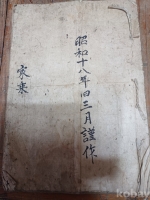 昭和十八年旧三月謹作
家塞
kobay